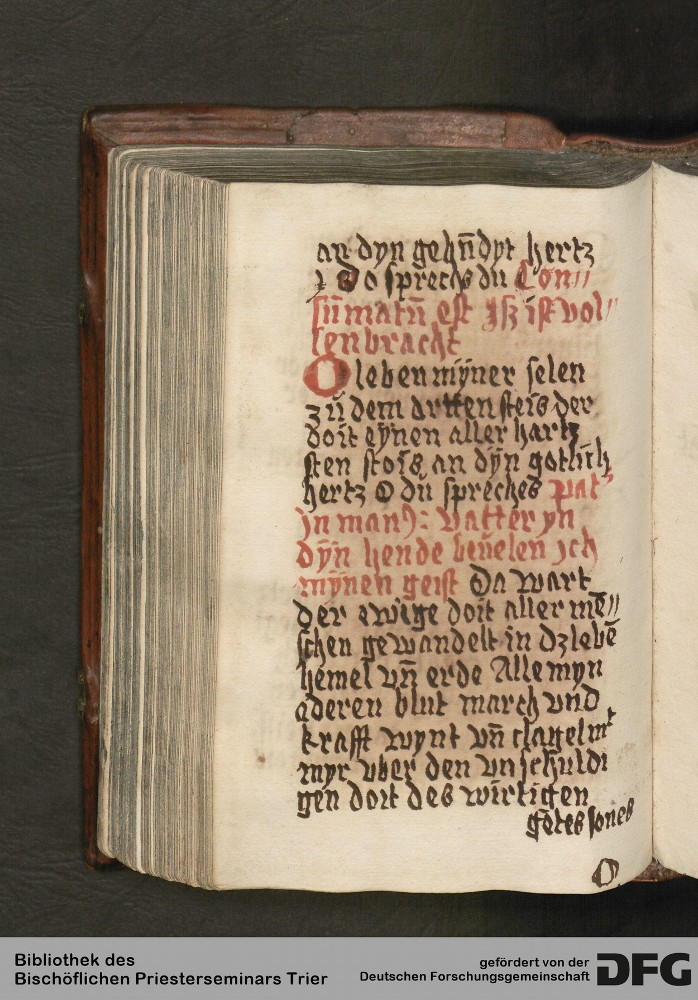 an dyn gebūdyt hertz
ꝛ Do sprechs du Con//
sūmatū est Jsz ist vol//
lenbracht
O leben mÿner selen
zü dem artten steis der
doit eÿnen aller hartz
sten stois an dÿn gotlich
hertz O dü spreches pat'
jn man9: vatter yn
dÿn hende beüelen jch
mÿnen geist Da wart
der ewige doit aller mē//
schen gewandelt in dz lebē
hemel vn̄ erde Alle myn
aderen blut march vnd
krafft wynt vn̄ clagel mt
myr vber den vnschuldi
gen doit des wirtigen
gotes sones
O
Bibliothek des
Bischöflichen Priesterseminars Trier
gefördert von der
Deutschen Forschungsgemeinschaft
DFG